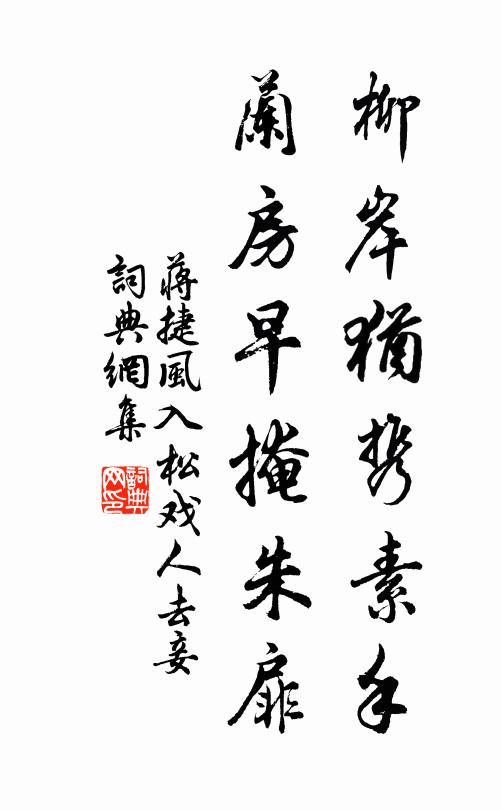 柳岸猶携素手
蘭房早掩朱扉
蔣捷風入松戏人去妾
詞典網集
詞典
网印